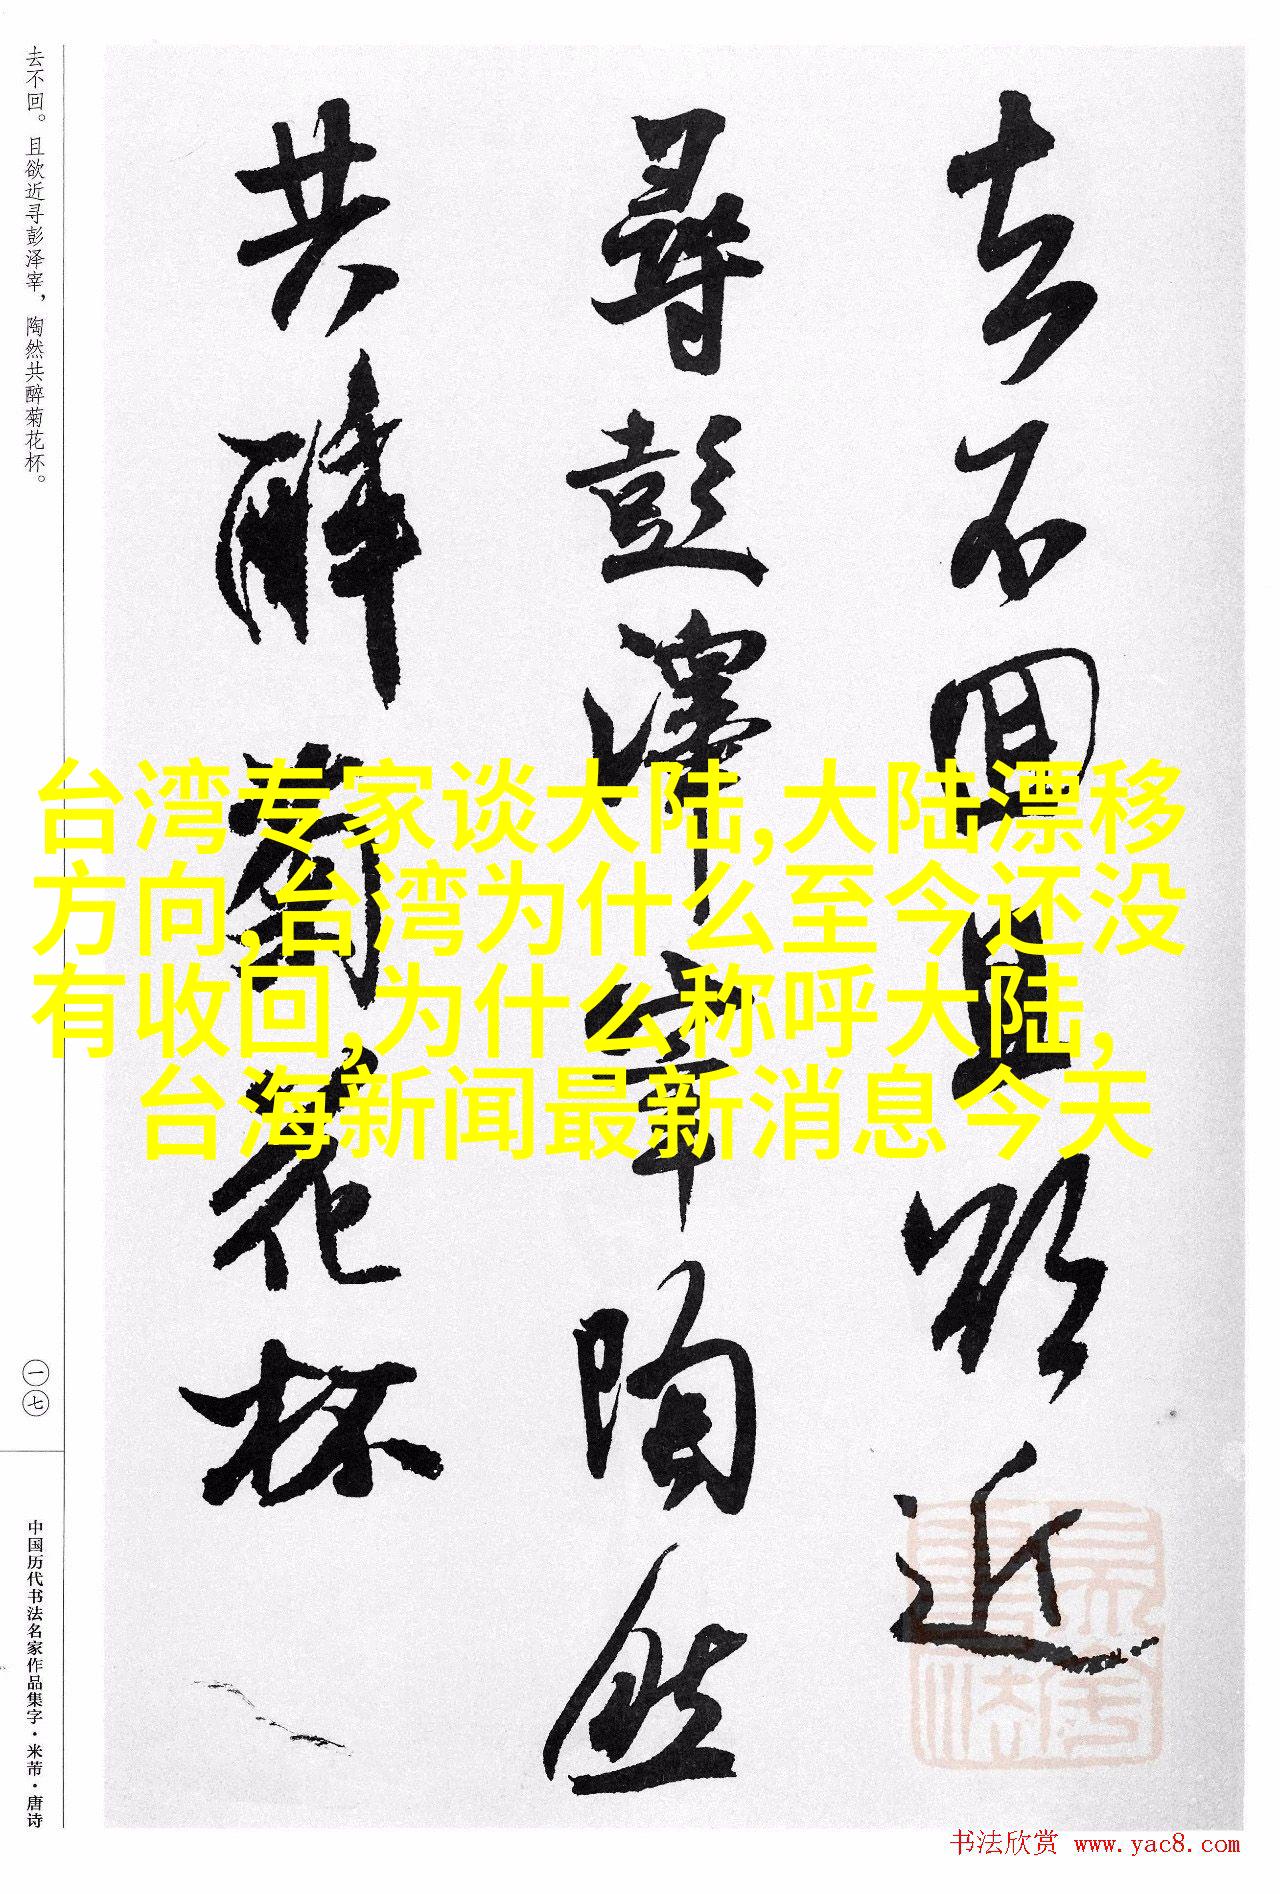 去不回且欲近
尋彭澤宰陶然
共醉菊花杯
去不回。且欲近寻彭泽宰，陶然共醉菊花杯。
一七
中国历代书法名家作品集字·米芾·唐诗
台湾专家谈大陆,大陆漂移
方向,台湾为什么至今还没
有收回,为什么称呼大陆,
台海新闻最新消息今天
书法欣赏 www.yac8.com